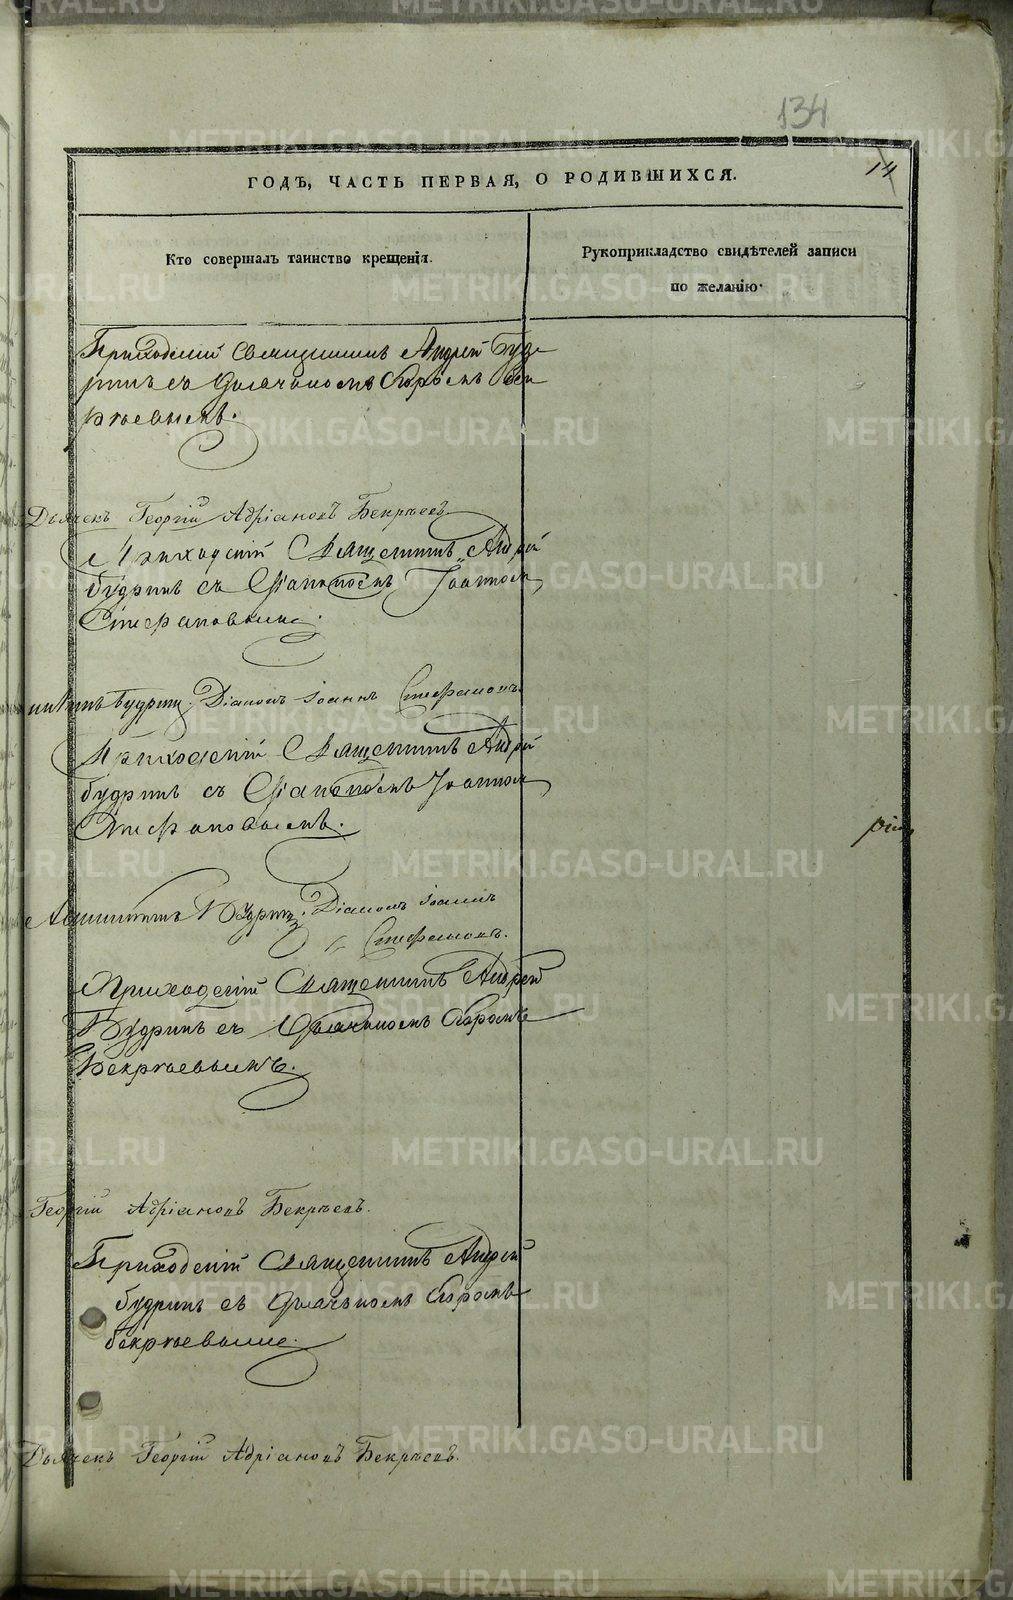 134
14
ГОДЪ, ЧАСТЬ ПЕРВАЯ, О РОДИВШИХСЯ.
Кто совершалъ таинство крещенія.
Рукоприкладство свидѣтелей записи
по желанію.
Приходскій Священникъ Андрей Буд-
ринъ съ Дьячкомъ Егоромъ Бек-
рѣевымъ.
Дьячекъ Георгій Адріановъ Бекрѣевъ.
Приходскій Священникъ Андрей
Будринъ съ Діакономъ Іоанномъ
Стефановымъ.
Будринъ. Діаконъ Іоаннъ Стефановъ.
Приходскій Священникъ Андрей
Будринъ съ Діакономъ Іоанномъ
Стефановымъ.
Будринъ. Діаконъ Іоаннъ
Стефановъ.
Приходскій Священникъ Андрей
Будринъ съ Дьячкомъ Егоромъ
Бекрѣевымъ.
Георгій Адріановъ Бекрѣевъ.
Приходскій Священникъ Андрей
Будринъ съ Дьячкомъ Егоромъ
Бекрѣевымъ.
Дьячекъ Георгій Адріановъ Бекрѣевъ.
METRIKI.GASO-URAL.RU